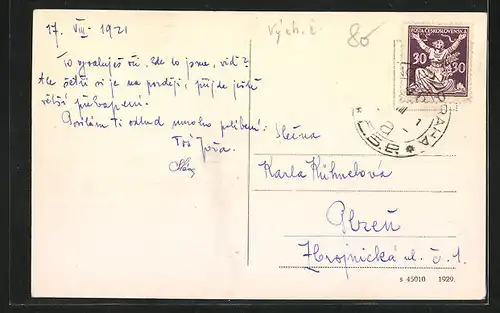 17. VIII - 1921
To vyvaluješ oči, kde to jsme, viď?
Ale šetři si je na později, přijde ještě
větší překvapení.
Posílám Ti odtud mnoho políbení
Tvůj Jožka.
Vých. č.
80
POŠTA ČESKOSLOVENSKÁ
30 30
PRAHA
Slečna
Karla Kühnelová
Plzeň
Zbrojnická ul. č. 1.
s 45010 1929.